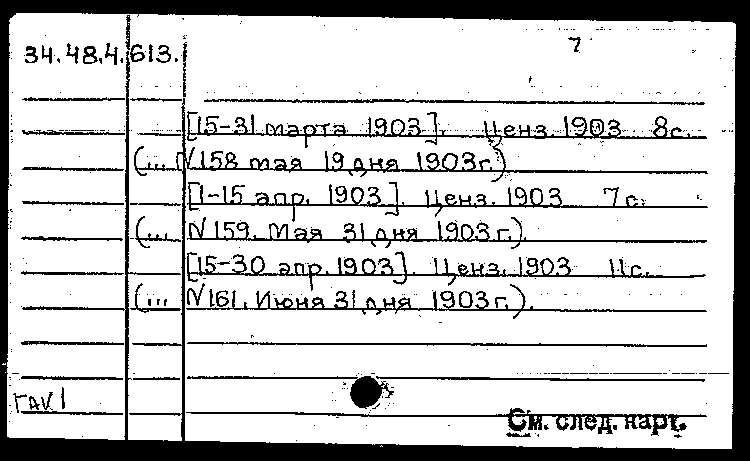 34.48.4.613.
7
[15-31 марта 1903]. Ценз. 1903 8с.
(... N158 мая 19 дня 1903г.)
[1-15 апр. 1903]. Ценз. 1903 7с.
(... N159. Мая 31 дня 1903г.).
[15-30 апр. 1903]. Ценз. 1903 11с.
(... N161. Июня 31 дня 1903г.).
ГАК 1
См. след. карт.